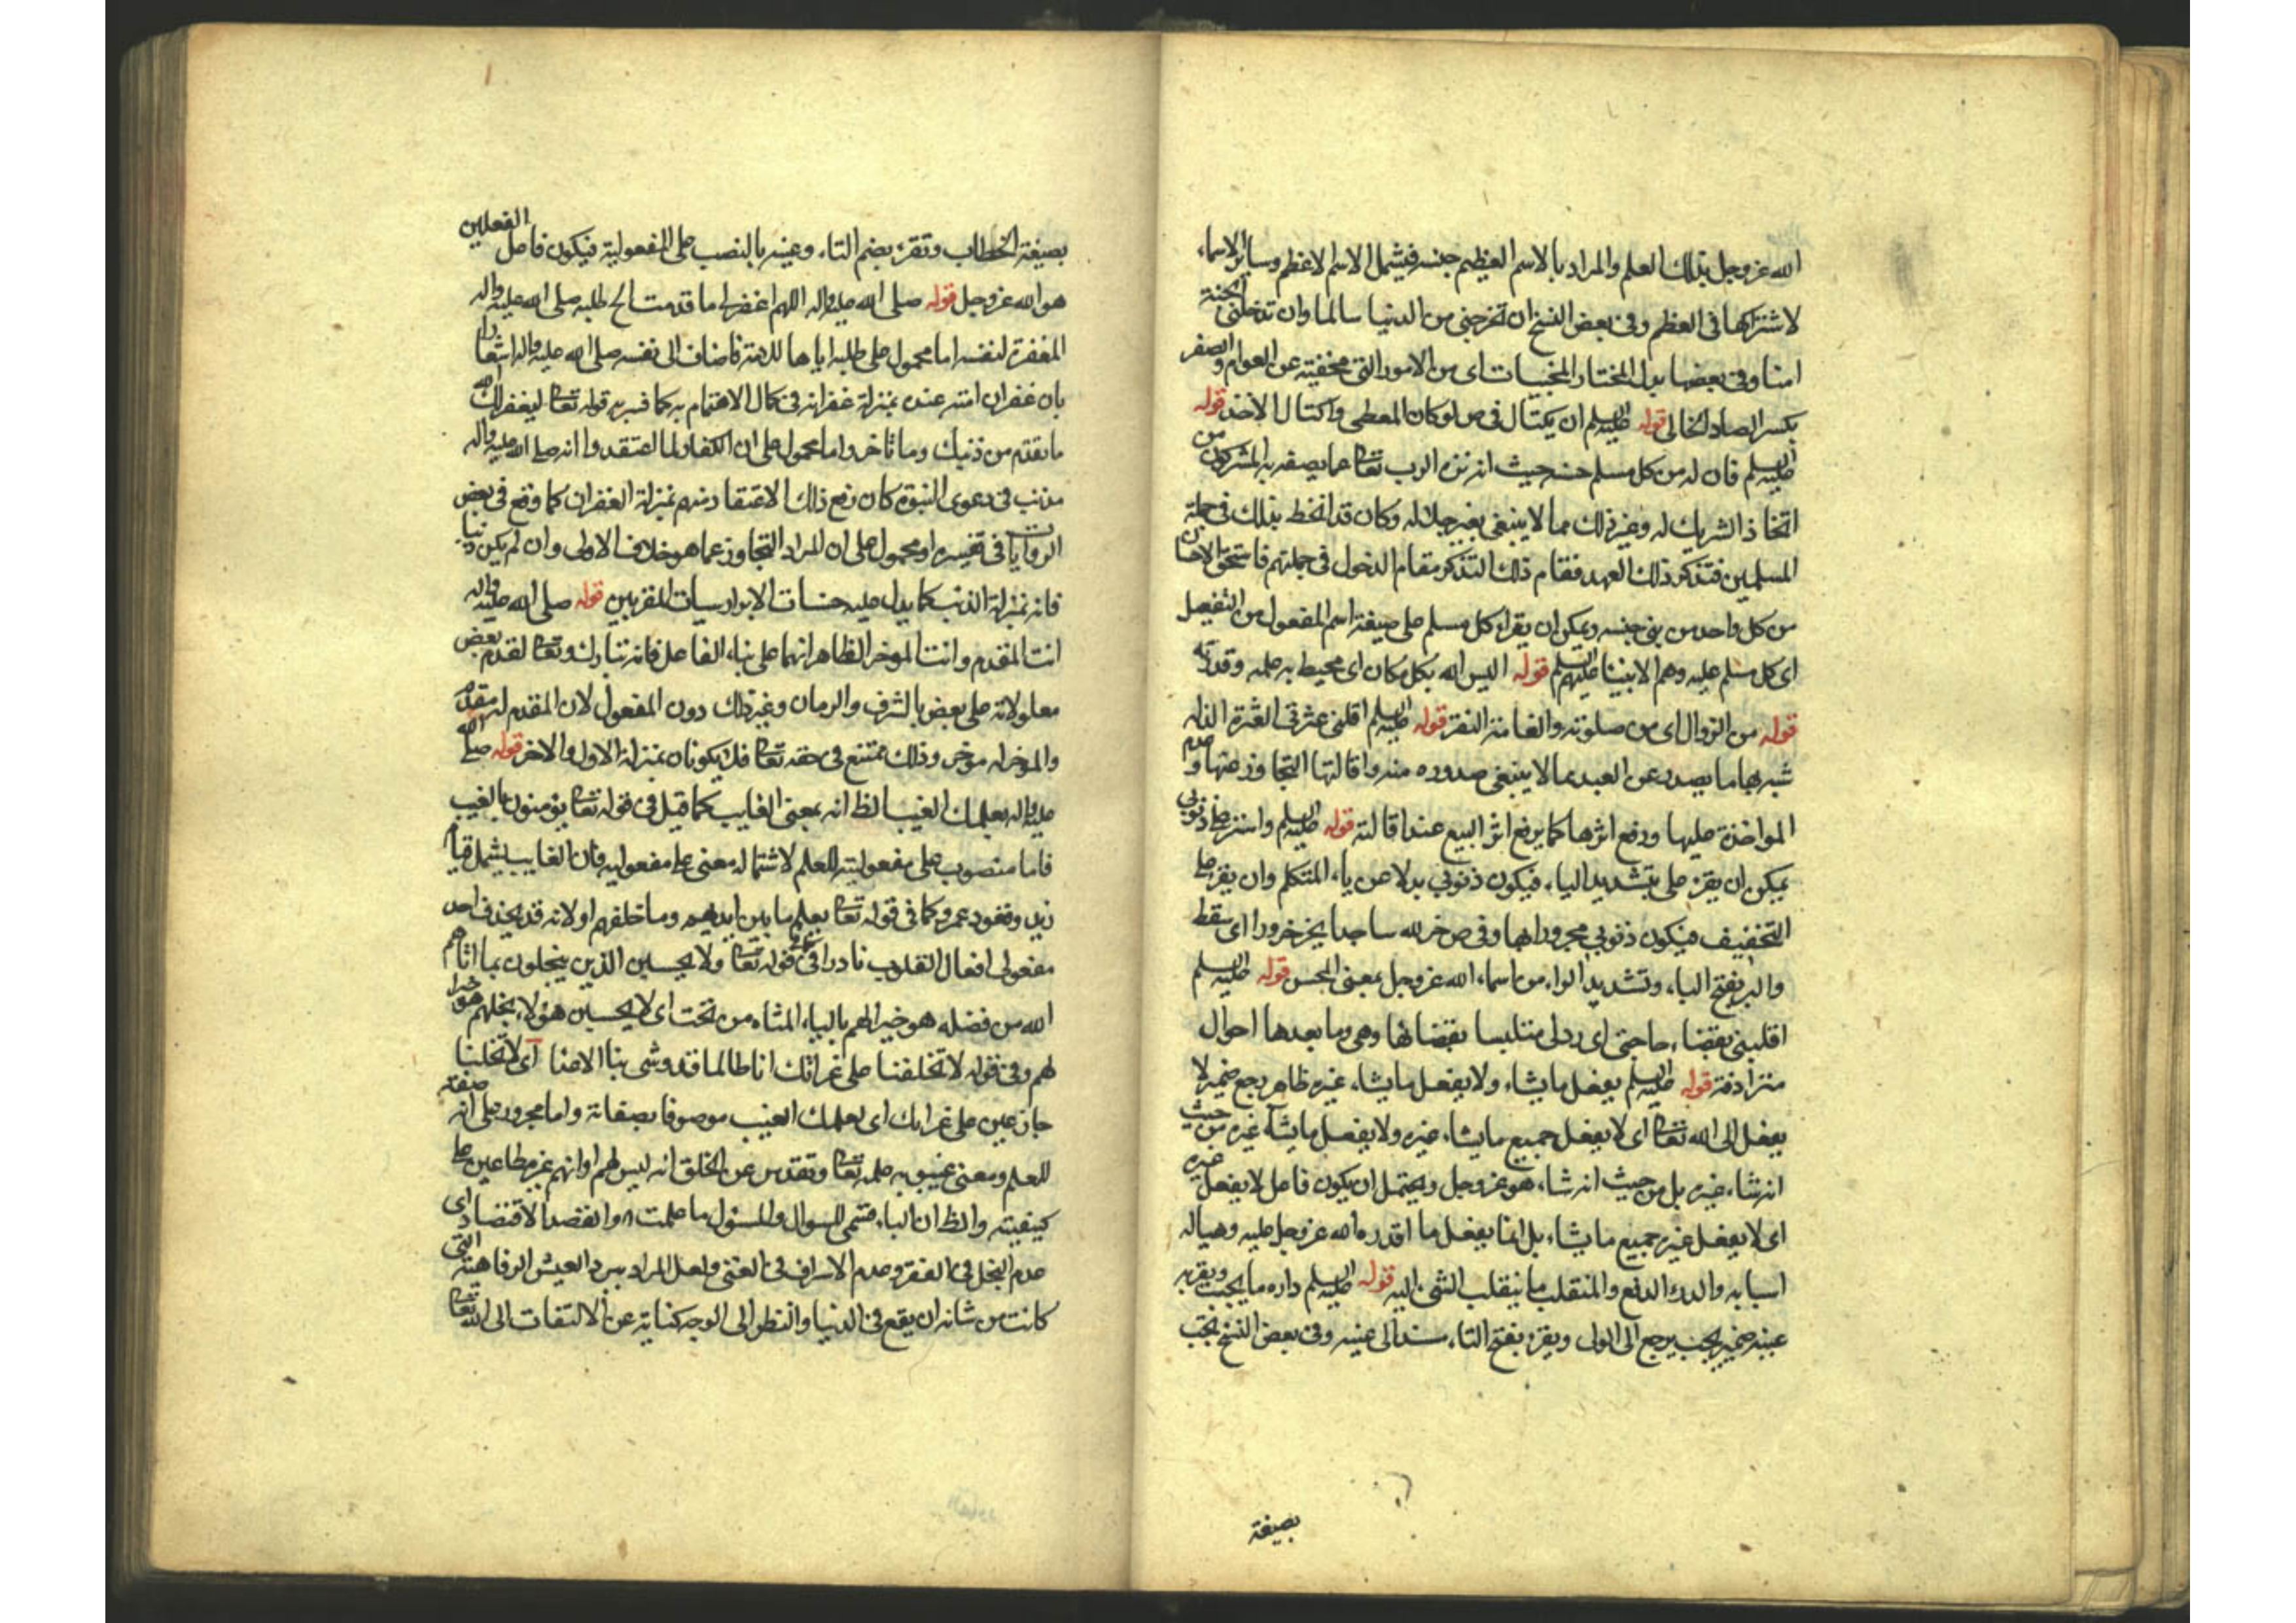 الله عز وجل بذلك العلم والمراد بالاسم العظيم جنسه فيشمل الاسم الاعظم وساير الاسماء
لاشتراكها فى العظم وفى بعض النسخ ان تخرجنى من الدنيا سالما وان تدخلنى الجنة
امنا وفى بعضها بدل المختار المخبيات اى من الامور التى مخفية عن العوام والصفر
بكسر الصاد الخالى قوله عليه السلم ان يكتال فى ص لو كان المعطى واكتال الاخذ قوله
عليه السلم فان له من كل مسلم حسنه حيث انه نزه الرب تعالى عما يصفه به المشركون من
اتخاذ الشريك له وغير ذلك مما لا ينبغى بغير جلاله وكان قد انخط بذلك فى جملة
المسلمين فتذكر ذلك العهد فقام ذلك التذكر مقام الدخول فى جملتهم فاستحق الاحسان
من كل واحد من بنى جنسه ويمكن ان يقرا كل مسلم على صيغة اسم المفعول من التفعيل
اى كل مسلم عليه وهم الانبياء عليهم السلم قوله اليس الله بكل مكان اى محيط به علمه وقدرته
قوله من الزوال اى من صلوته والفا منه النقر قوله عليه السلم اقلنى عثرتى العثرة الزلة
شبه بها ما يصدر عن العبد مما لا ينبغى صدوره منه واقالتها التجاوز عنها وعدم
المواخذة عليها ورفع اثرها كما يرفع اثر البيع عند اقالته قوله عليه السلم واستر على ذنوبى
يمكن ان يقرء على بتشديد الياء فيكون ذنوبى بدلا عن ياء المتكلم وان يقرء على
التخفيف فيكون ذنوبى مجرورا بها وفى ص خر لله ساجدا يخر خرورا اى سقط
والبر بفتح الباء وتشديد الراء من اسماء الله عز وجل بمعنى المحسن قوله عليه السلم
اقلبنى بقضاء حاجتى اى ردنى متلبسا بقضائها وهى وما بعدها احوال
مترادفة قوله عليه السلم يفعل ما يشاء ولا يفعل ما يشاء غيره ظاهر رجع ضمير لا
يفعل الى الله تعالى اى لا يفعل جميع ما يشاء غيره ولا يفعل ما يشاء غيره من حيث
انه شاء غيره بل من حيث انه شاء هو عز وجل ويحتمل ان يكون فاعل لا يفعل غيره
اى لا يفعل غيره جميع ما يشاء بل انما يفعل ما اقدره الله عز وجل عليه وهيا له
اسبابه والدرء الدفع والمنقلب ما ينقلب الشئ اليه قوله عليه السلم داره ما يجب ويقر به
عينه ضمير يجب يرجع الى المولى ويقرء بفتح التاء مسندا الى عينه وفى بعض النسخ تجب
بصيغة
بصيغة الخطاب وتقرء بضم التاء وعينه بالنصب على المفعولية فيكون فاعل الفعلين
هو الله عز وجل قوله صلى الله عليه واله اللهم اغفر لى ما قدمت الح طلبه صلى الله عليه واله
المغفرة لنفسه اما محمول على طلبه اياها للامة فاضاف الى نفسه صلى الله عليه واله اشعارا
بان غفران امته عنده بمنزلة غفرانه فى كمال الاهتمام به كما فسر به قوله تعالى ليغفر لك الله
ما تقدم من ذنبك وما تاخر واما محمول على ان الكفار لما اعتقدوا انه صلى الله عليه واله
مذنب فى دعوى النبوة كان رفع ذلك الاعتقاد منهم بمنزلة الغفران كما وقع فى بعض
الروايات فى تفسيره او محمول على ان المراد التجاوز عما هو خلاف الاولى وان لم يكن ذنبا
فانه بمنزلة الذنب كما يدل عليه حسنات الابرار سيات المقربين قوله صلى الله عليه واله
انت المقدم وانت الموخر الظاهر انهما على بناء الفاعل فانه تبارك وتعالى لقدم بعض
معلولاته على بعض بالشرف والزمان وغير ذلك دون المفعول لان المقدم له مقدم
والموخر له موخر وذلك ممتنع فى حقه تعالى فلا يكونان بمنزلة الاول والاخر قوله صلى الله
عليه واله بعلمك الغيب الظ انه بمعنى الغايب كما قيل فى قوله تعالى يؤمنون بالغيب
فاما منصوب على مفعولية للعلم لاشتماله معنى على مفعوليه فان الغايب يشمل قيام
زيد وقعود عمرو كما فى قوله تعالى يعلم ما بين ايديهم وما خلفهم او لانه قد يحذف احد
مفعولى افعال القلوب نادرا كما فى قوله تعالى ولا يحسبن الذين يبخلون بما اتاهم
الله من فضله هو خيرا لهم بالياء المثناه من تحت اى لا يحسبن هؤلاء بخلهم هو خيرا
لهم وفى قوله لا تخلنا على غراتك انا طالما قد وشى بنا الاعداء اى لا تخلنا
جازعين على غرائك اى بعلمك الغيب موصوفا بصفاته واما مجرور على انه صفة
للعلم ومعنى غيبوبة علمه تعالى وتقدس عن الخلق انه ليس لهم او انهم غير مطلعين على
كيفيته والظ ان الباء قسمى للسؤال والمسئول ما علمت والقصد الاقتصاد اى
عدم البخل فى الفقر وعدم الاسراف فى الغنى ولعل المراد ببرد العيش الرفاهة التى
كانت من شانه ان يقع فى الدنيا والنظر الى الوجه كناية عن الالتفات الى الله تعالى